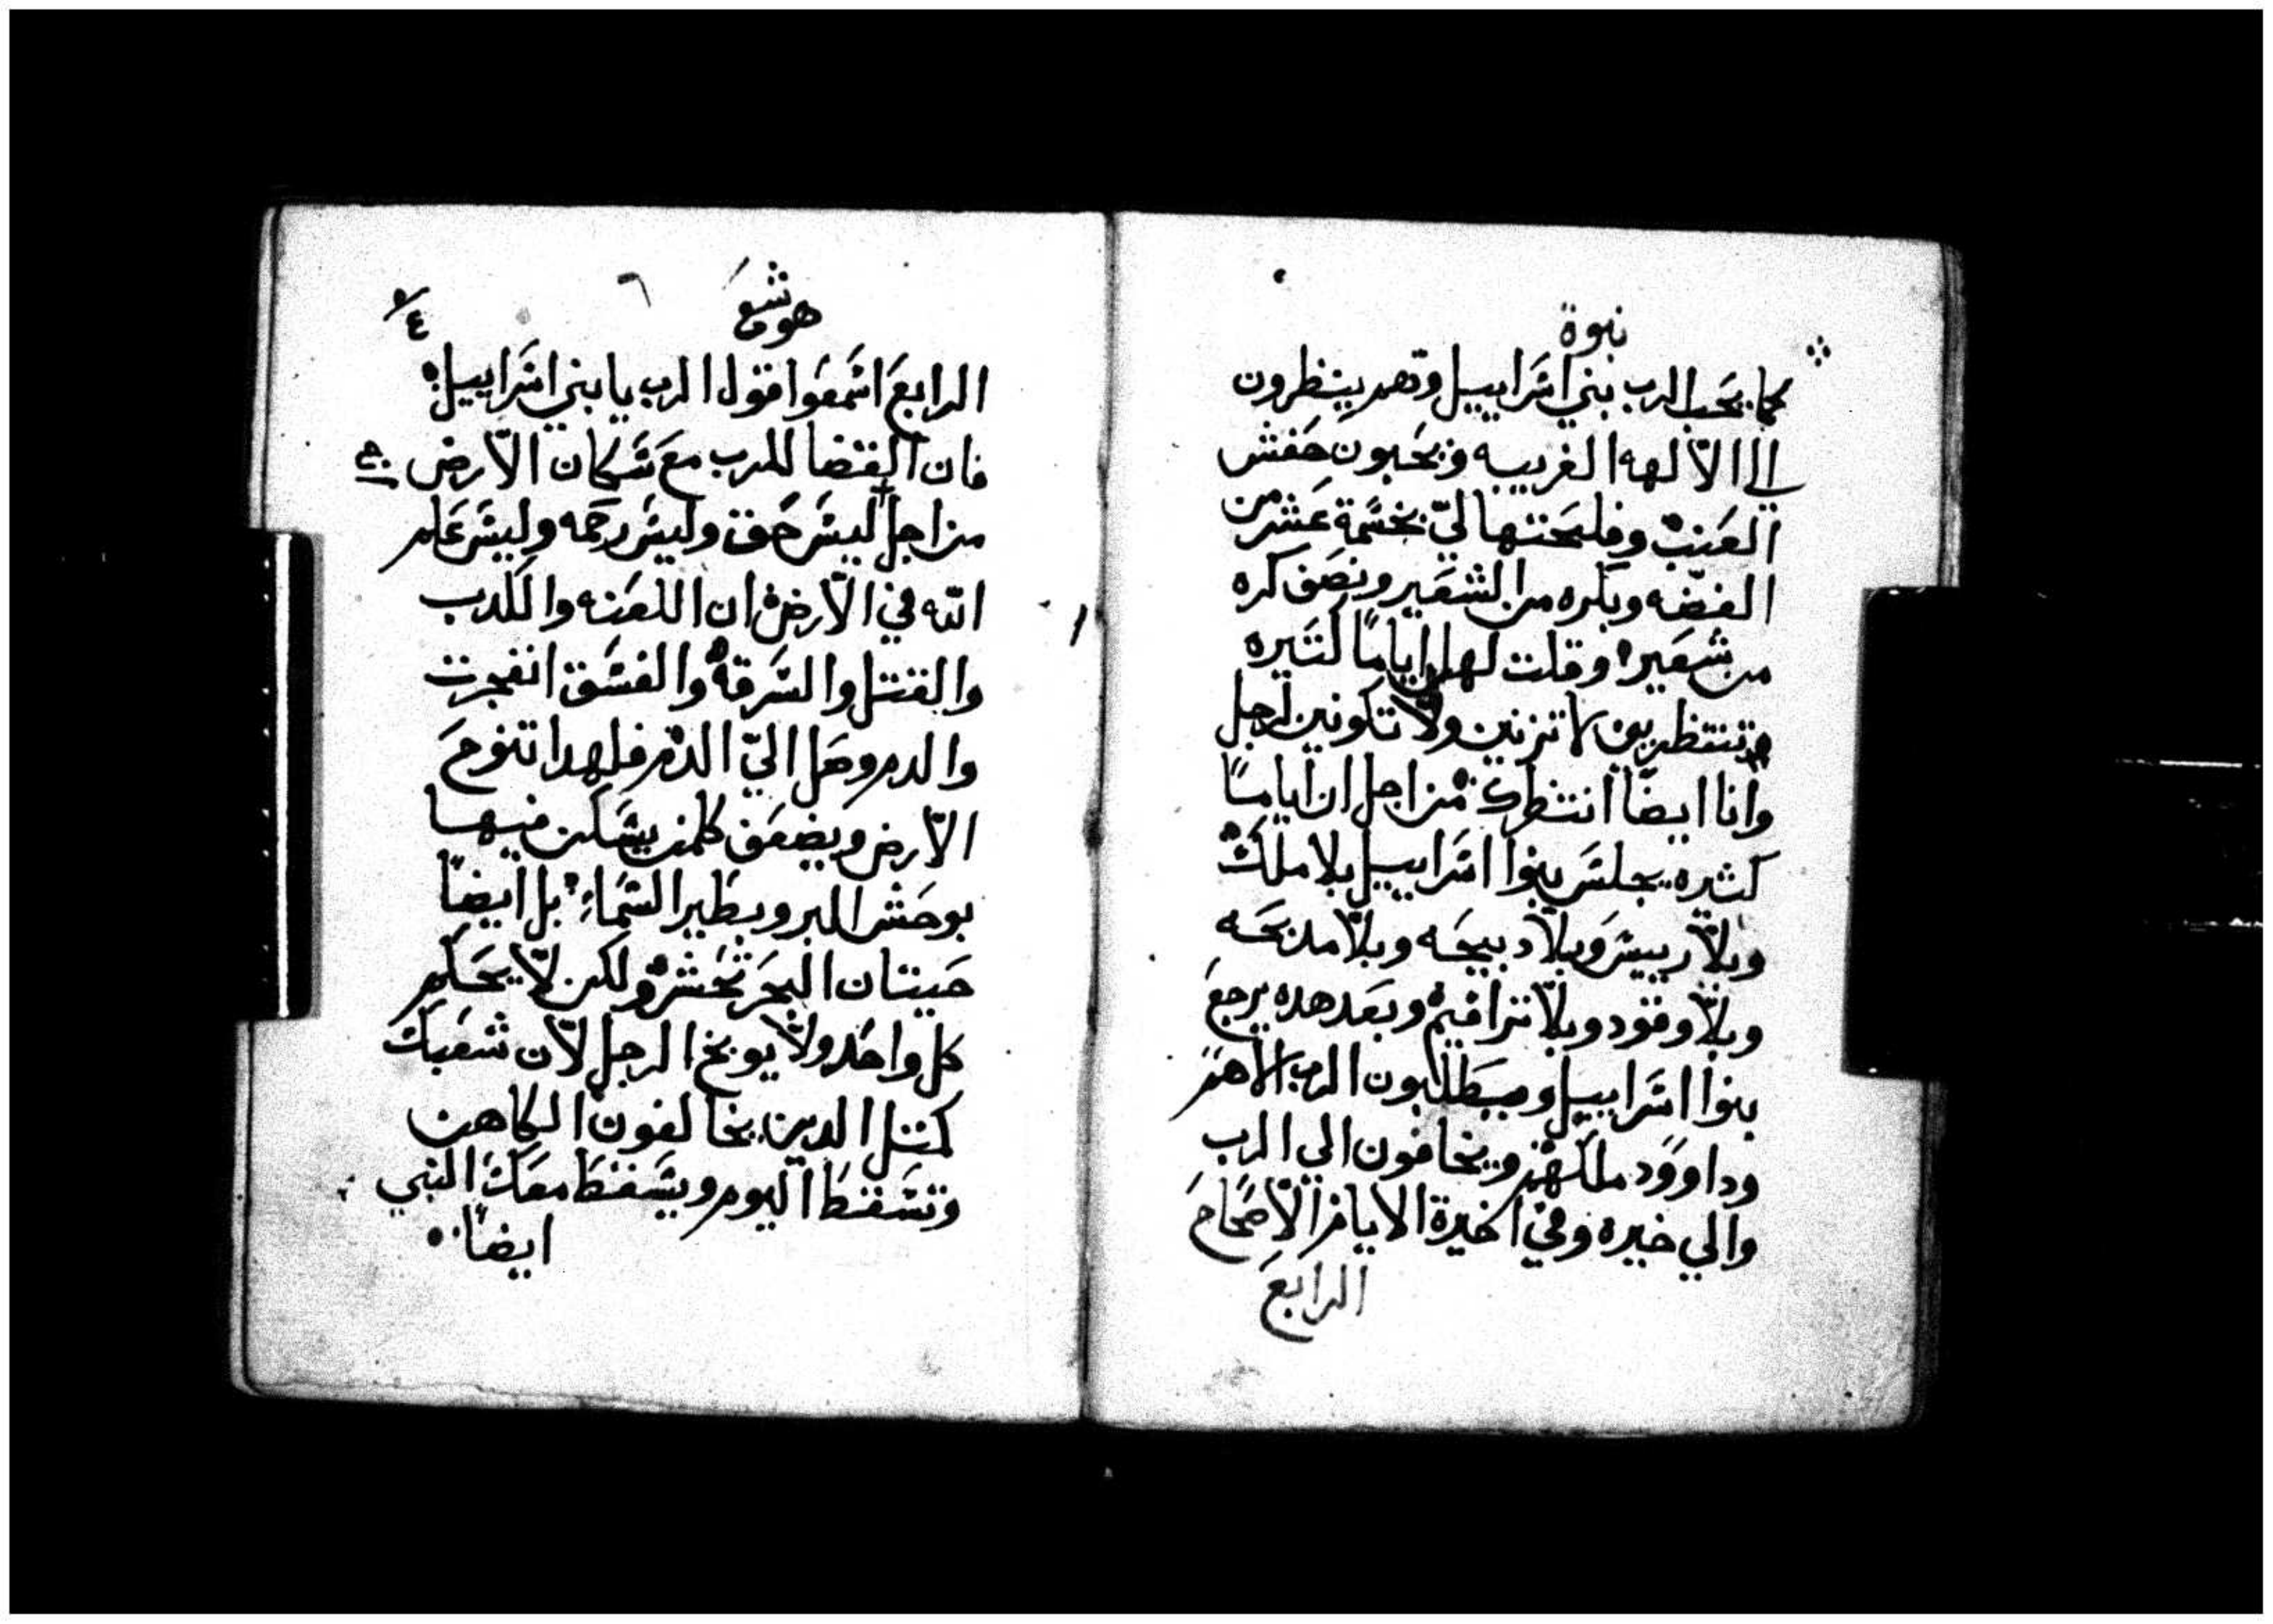 نبوة
كما يحب الرب بني اسراييل وهم ينظرون
الي الالهه الغريبه ويحبون حفش
العنب وفلحتها لي بخسمة عشر من
الفضه وبكره من الشعير ونصف كره
من شعير وقلت لها اياماً كتيره
تنتظريني لا تزنين ولا تكونين لرجل
وانا ايضاً انتظرك من اجل ان اياماً
كثيره يجلس بنوا اسراييل بلا ملك
وبلا رييس وبلا دبيحه وبلا مدبحه
وبلا وقود وبلا ترافيم وبعد هده يرجع
بنوا اسراييل ويطلبون الرب الاههم
وداوود ملكهم ويخافون الي الرب
والي خيره وفي اخيرة الايام الاصحاح
الرابع
هوشع
٦
٤
الرابع اسمعوا قول الرب يا بني اسراييل
فان القضا للرب مع سكان الارض
من اجل ليس حق وليس رحمه وليس علم
الله في الارض ان اللعنه والكدب
والقتل والسرقة والفسق انفجرت
والدم وصل الي الدم فلهدا تنوح
الارض ويضعف كلمن يسكن فيها
بوحش البر وبطير السماء بل ايضاً
حيتان البحر تحشر ولكن لا يحكم
كل واحد ولا يوبخ الرجل لان شعبك
كمتل الدين يخالفون الكاهن
وتسقط اليوم ويسقط معك النبي
ايضاً